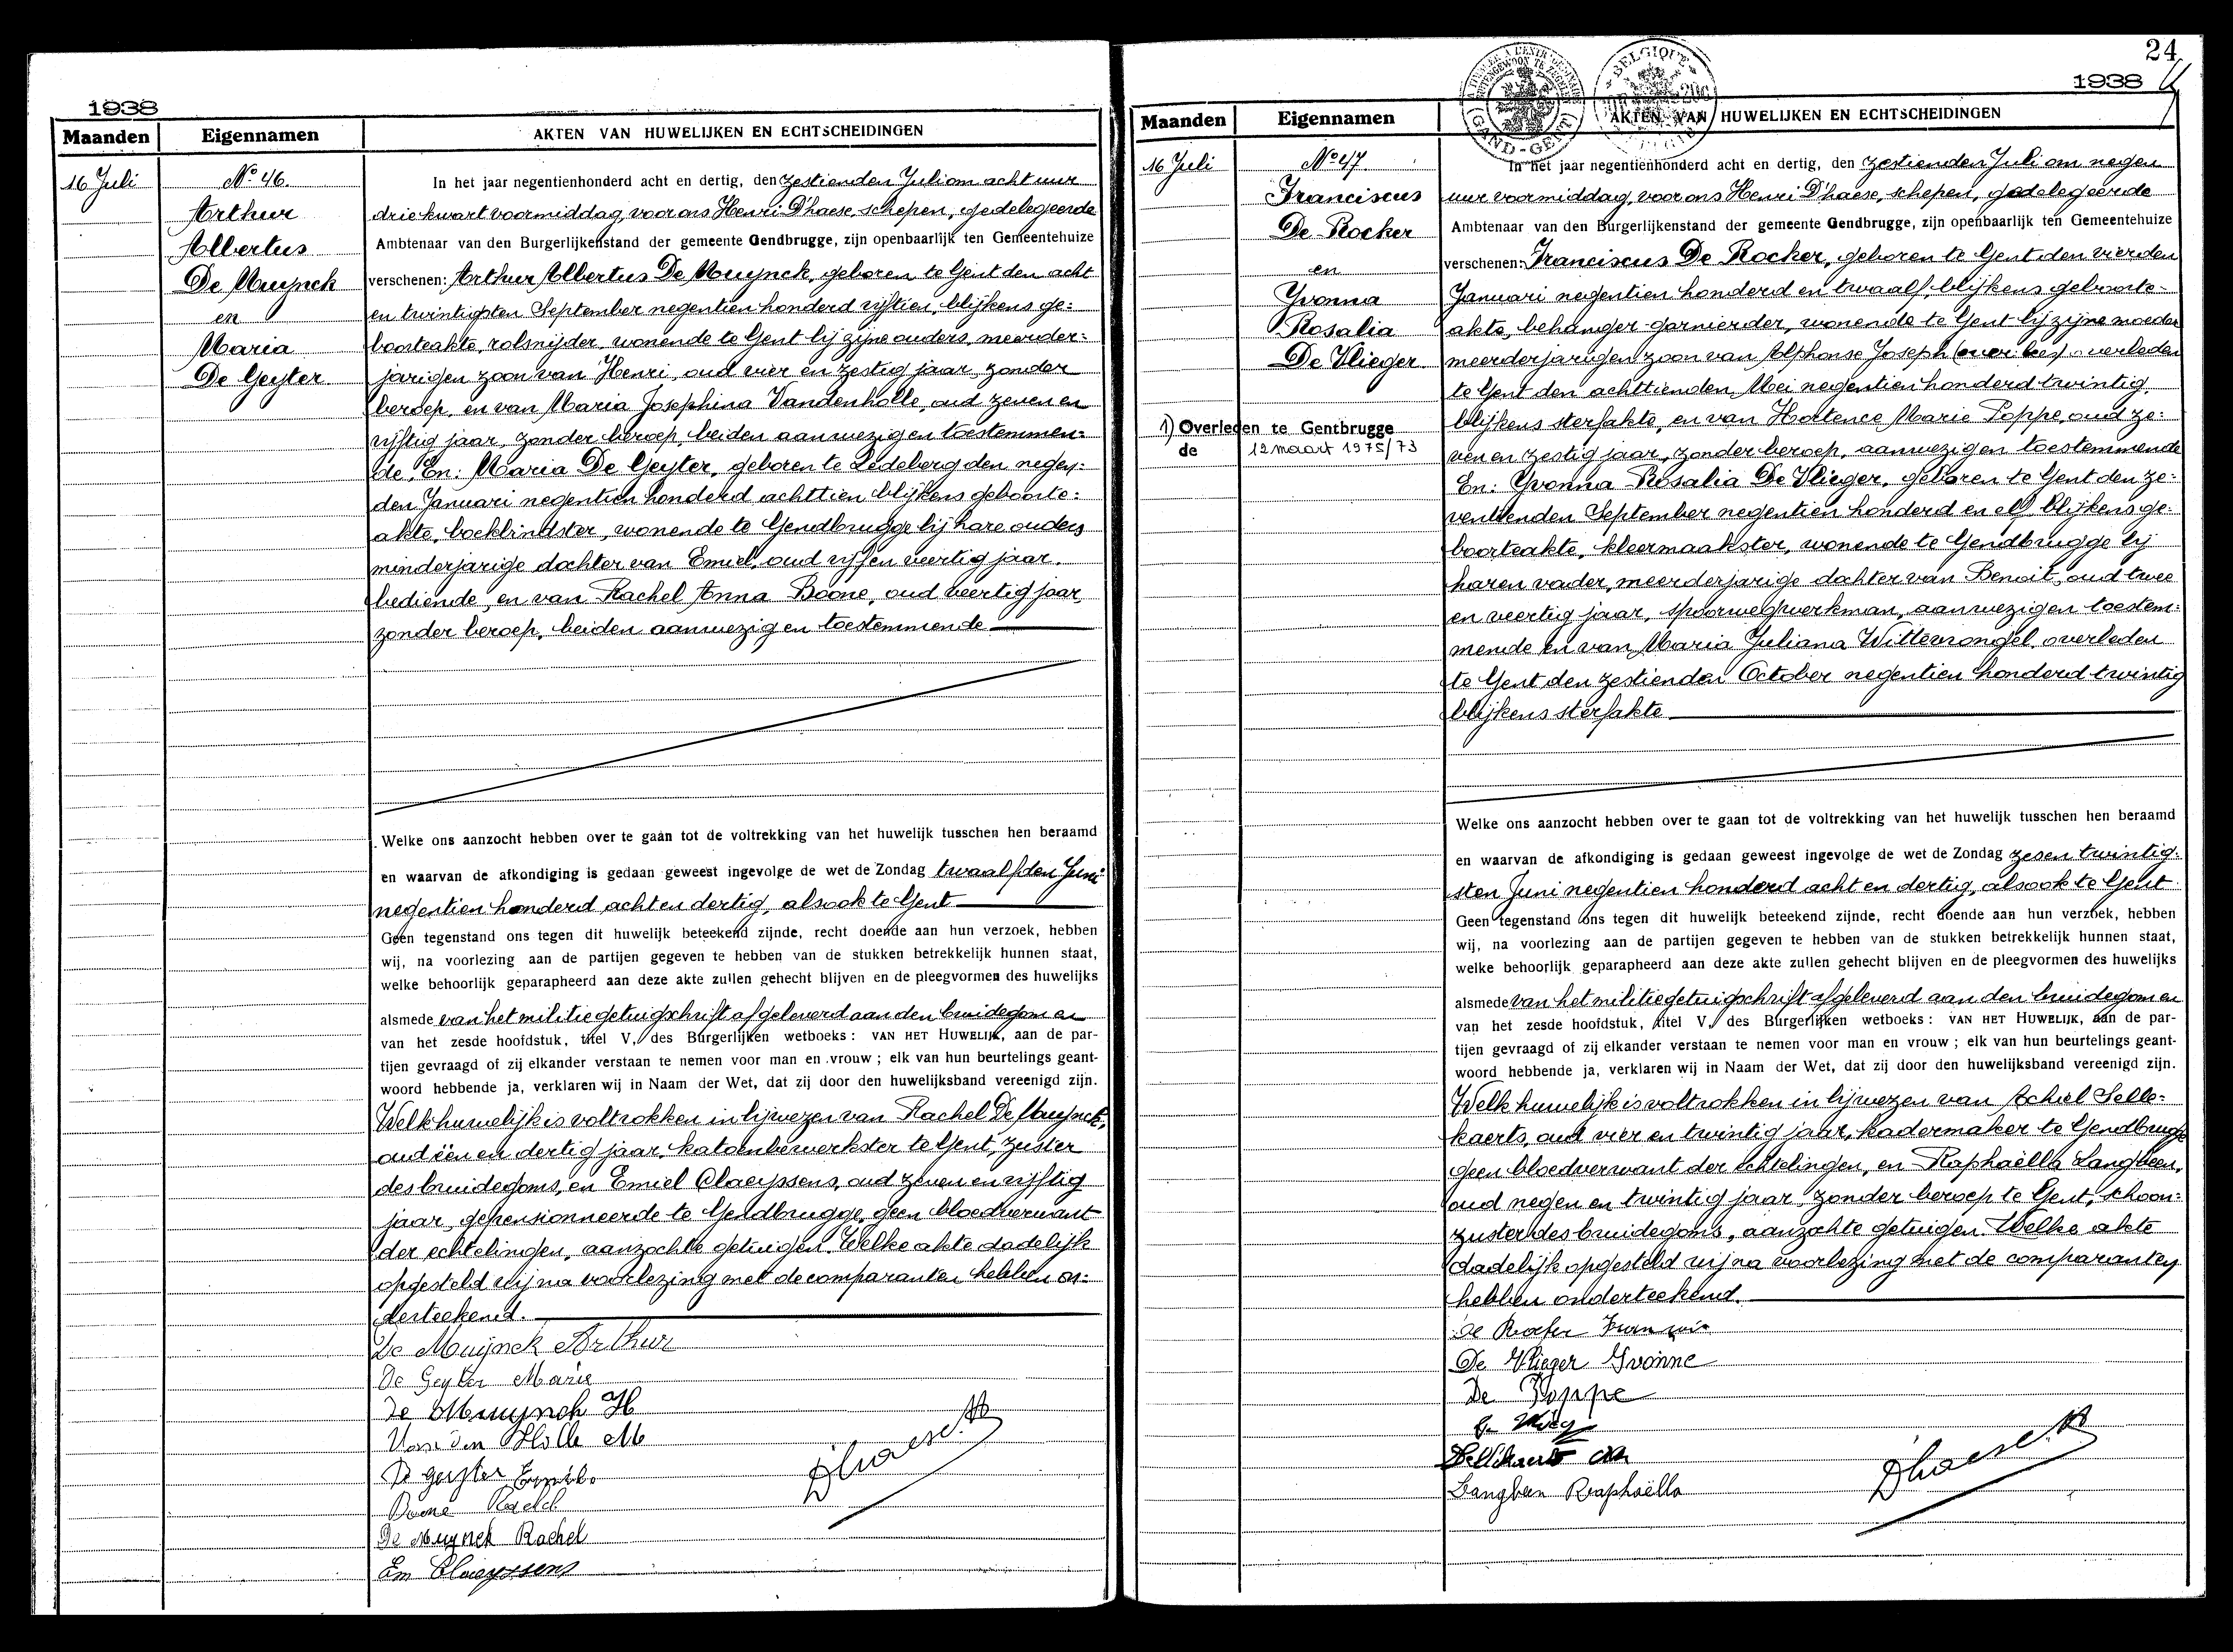 1938
Maanden
Eigennamen
AKTEN VAN HUWELIJKEN EN ECHTSCHEIDINGEN
16 Juli
No 46.
Arthur
Albertus
De Muynck
en
Maria
De Geyter
In het jaar negentienhonderd acht en dertig, den zestienden Juli om acht uur
driekwart voormiddag, voor ons Henri D'haese, schepen, gedelegeerde
Ambtenaar van den Burgerlijkenstand der gemeente Gendbrugge, zijn openbaarlijk ten Gemeentehuize
verschenen: Arthur Albertus De Muynck, geboren te Gent den acht
en twintigsten September negentien honderd vijftien, blijkens ge:
boorteakte, rolsnijder, wonende te Gent bij zijne ouders, meerder:
jarigen zoon van Henri, oud vier en zestig jaar, zonder
beroep, en van Maria Josephina Vandenholle, oud zeven en
vijftig jaar, zonder beroep, beiden aanwezig en toestemmen:
de. En: Maria De Geyter, geboren te Ledeberg den negen:
den Januari negentien honderd achttien blijkens geboorte:
akte, boekbindster, wonende te Gendbrugge bij hare ouders
minderjarige dochter van Emiel, oud vijf en veertig jaar,
bediende, en van Rachel Anna Boone, oud veertig jaar,
zonder beroep, beiden aanwezig en toestemmende
Welke ons aanzocht hebben over te gaan tot de voltrekking van het huwelijk tusschen hen beraamd
en waarvan de afkondiging is gedaan geweest ingevolge de wet de Zondag twaalfden Juni
negentien honderd acht en dertig, alsook te Gent
Geen tegenstand ons tegen dit huwelijk beteekend zijnde, recht doende aan hun verzoek, hebben
wij, na voorlezing aan de partijen gegeven te hebben van de stukken betrekkelijk hunnen staat,
welke behoorlijk geparapheerd aan deze akte zullen gehecht blijven en de pleegvormen des huwelijks
alsmede van het militiegetuigschrift afgeleverd aan den bruidegom en
van het zesde hoofdstuk, titel V, des Burgerlijken wetboeks: VAN HET HUWELIJK, aan de par-
tijen gevraagd of zij elkander verstaan te nemen voor man en vrouw; elk van hun beurtelings geant-
woord hebbende ja, verklaren wij in Naam der Wet, dat zij door den huwelijksband vereenigd zijn.
Welk huwelijk is voltrokken in bijwezen van Rachel De Muynck,
oud één en dertig jaar, katoenbewerkster te Gent, zuster
des bruidegoms, en Emiel Claeyssens, oud zeven en vijftig
jaar, gepensionneerde te Gendbrugge, geen bloedverwant
der echtelingen, aanzochte getuigen. Welke akte dadelijk
opgesteld wij na voorlezing met de comparanten hebben on:
derteekend.
De Muijnck Arthur
De Geyter Marie
De Muynck H
Van den Holle M
De geyter Emiel
Boone Rachel
De Muynck Rachel
Em Claeyssens
D'haese H
24
1938
GAND-GENT
BELGIQUE
Maanden
Eigennamen
AKTEN VAN HUWELIJKEN EN ECHTSCHEIDINGEN
16 Juli
No 47.
Franciscus
De Rocker
en
Yvonna
Rosalia
De Vlieger
1) Overleden te Gentbrugge
de 12 maart 1975/73
In het jaar negentienhonderd acht en dertig, den zestienden Juli om negen
uur voormiddag, voor ons Henri D'haese, schepen, gedelegeerde
Ambtenaar van den Burgerlijkenstand der gemeente Gendbrugge, zijn openbaarlijk ten Gemeentehuize
verschenen: Franciscus De Rocker, geboren te Gent den vierden
Januari negentien honderd en twaalf, blijkens geboorte-
akte, behanger-garnierder, wonende te Gent bij zijne moeder
meerderjarigen zoon van Alphonse Joseph overleden
te Gent den achttienden Mei negentien honderd twintig,
blijkens sterfakte, en van Hortence Marie Poppe, oud ze:
ven en zestig jaar, zonder beroep, aanwezig en toestemmende
En: Yvonna Rosalia De Vlieger, geboren te Gent den ze:
ventienden September negentien honderd en elf, blijkens ge:
boorteakte, kleermaakster, wonende te Gendbrugge bij
haren vader, meerderjarige dochter van Benoit, oud twee
en veertig jaar, spoorwegwerkman, aanwezig en toestem:
mende en van Maria Juliana Wittewrongel, overleden
te Gent den zestienden October negentien honderd twintig
blijkens sterfakte
Welke ons aanzocht hebben over te gaan tot de voltrekking van het huwelijk tusschen hen beraamd
en waarvan de afkondiging is gedaan geweest ingevolge de wet de Zondag zes en twintig:
sten Juni negentien honderd acht en dertig, alsook te Gent
Geen tegenstand ons tegen dit huwelijk beteekend zijnde, recht doende aan hun verzoek, hebben
wij, na voorlezing aan de partijen gegeven te hebben van de stukken betrekkelijk hunnen staat,
welke behoorlijk geparapheerd aan deze akte zullen gehecht blijven en de pleegvormen des huwelijks
alsmede van het militiegetuigschrift afgeleverd aan den bruidegom en
van het zesde hoofdstuk, titel V, des Burgerlijken wetboeks: VAN HET HUWELIJK, aan de par-
tijen gevraagd of zij elkander verstaan te nemen voor man en vrouw; elk van hun beurtelings geant-
woord hebbende ja, verklaren wij in Naam der Wet, dat zij door den huwelijksband vereenigd zijn.
Welk huwelijk is voltrokken in bijwezen van Achiel Selle:
kaerts, oud vier en twintig jaar, kadermaker te Gendbrugge
geen bloedverwant der echtelingen, en Raphaëlla Langbeen,
oud negen en twintig jaar, zonder beroep te Gent, schoon:
zuster des bruidegoms, aanzochte getuigen. Welke akte
dadelijk opgesteld wij na voorlezing met de comparanten
hebben onderteekend.
De Vlieger Yvonne
De Poppe
Langbeen Raphaëlla
D'haese H